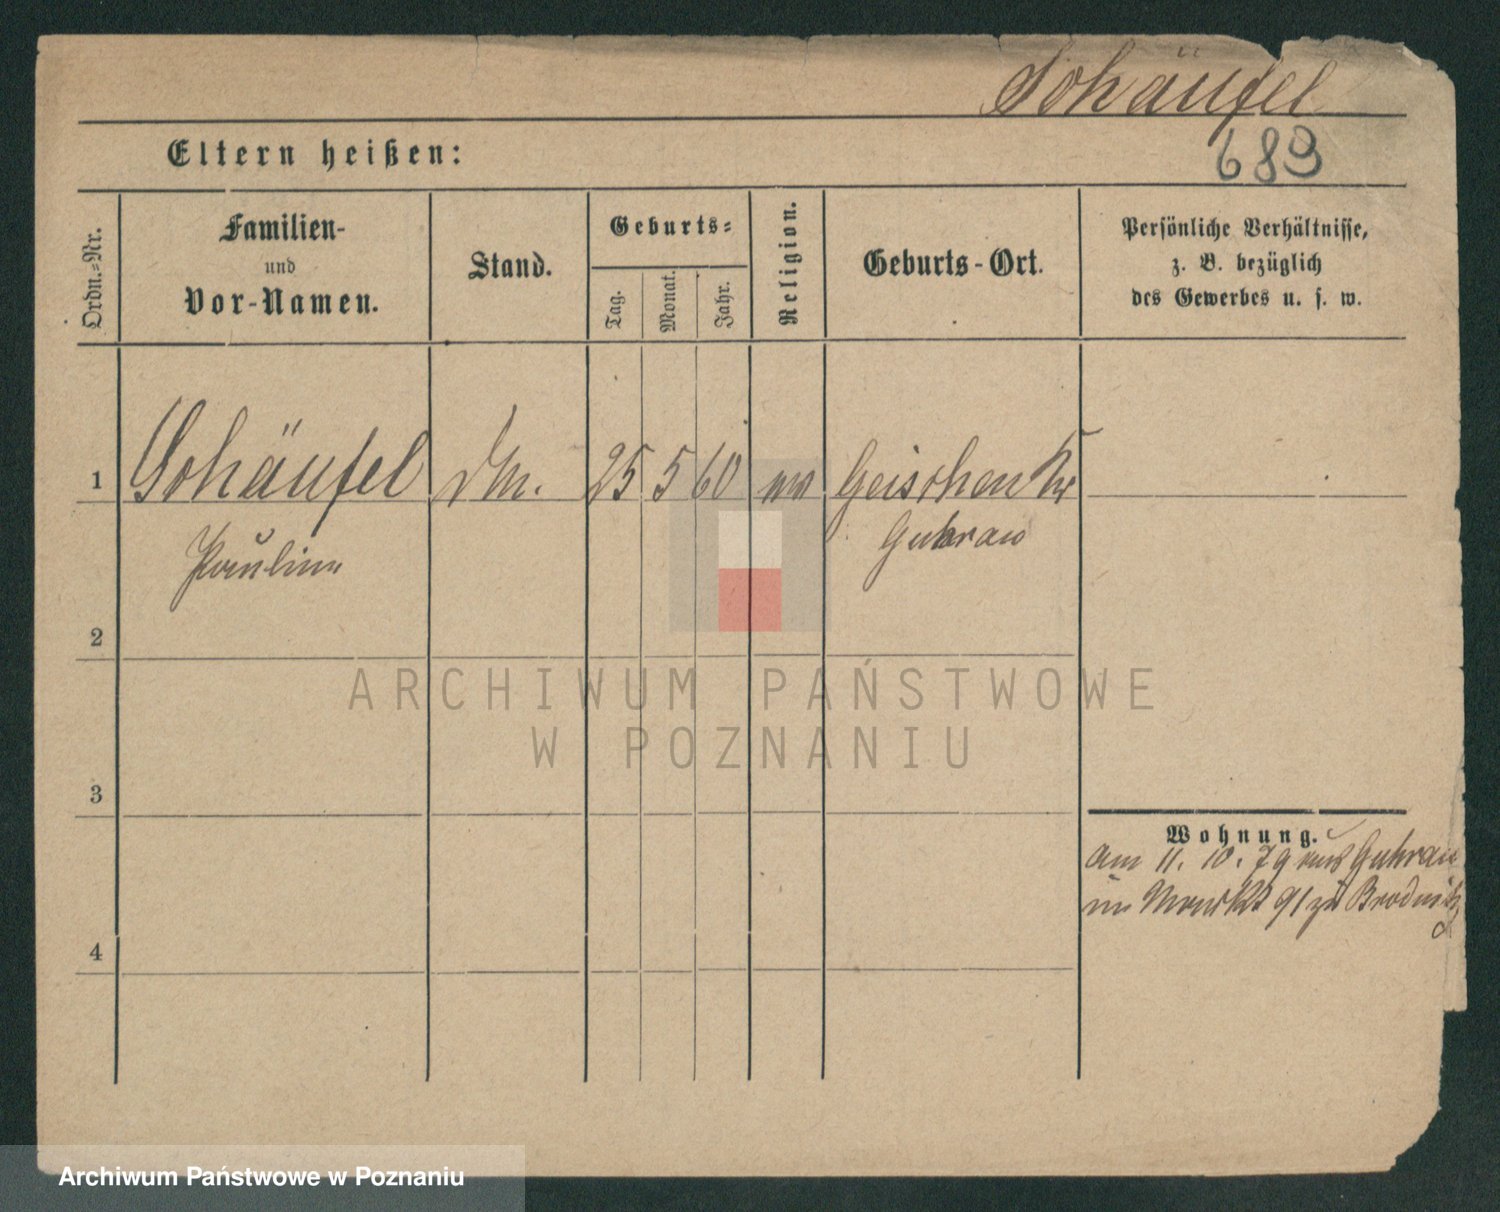 Schäufel
689
Eltern heißen:
Ordn.-Nr.
Familien-
und
Vor-Namen.
Stand.
Geburts-
Tag.
Monat.
Jahr.
Religion.
Geburts-Ort.
Persönliche Verhältnisse,
z. B. bezüglich
des Gewerbes u. s. w.
1 Schäufel 25 5 60 Geischen Kr
Pauline Guhrau
2
3
4
Wohnung.
am 11. 10. 79 aus Guhrau
91 zu
ARCHIWUM PAŃSTWOWE
W POZNANIU
Archiwum Państwowe w Poznaniu